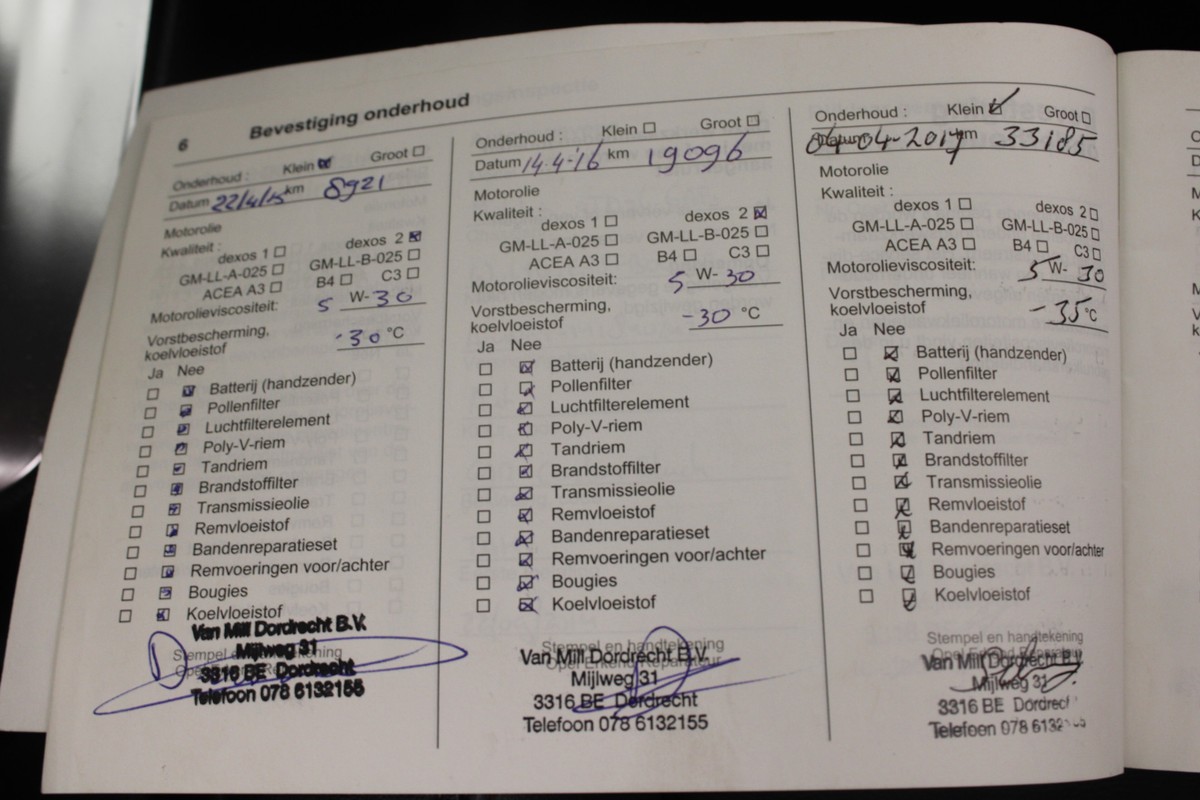 6 Bevestiging onderhoud
Onderhoud : Klein Groot
Datum 22/4/15 km 8921
Motorolie
Kwaliteit :
dexos 1 dexos 2
GM-LL-A-025 GM-LL-B-025
ACEA A3 B4 C3
Motorolieviscositeit: 5 W- 30
Vorstbescherming,
koelvloeistof -30 °C
Ja Nee
Batterij (handzender)
Pollenfilter
Luchtfilterelement
Poly-V-riem
Tandriem
Brandstoffilter
Transmissieolie
Remvloeistof
Bandenreparatieset
Remvoeringen voor/achter
Bougies
Koelvloeistof
Van Mill Dordrecht B.V.
Stempel en handtekening
Mijlweg 31
3316 BE Dordrecht
Telefoon 078 6132155
Onderhoud : Klein Groot
Datum 14.4-'16 km 19096
Motorolie
Kwaliteit :
dexos 1 dexos 2
GM-LL-A-025 GM-LL-B-025
ACEA A3 B4 C3
Motorolieviscositeit: 5 W- 30
Vorstbescherming,
koelvloeistof -30 °C
Ja Nee
Batterij (handzender)
Pollenfilter
Luchtfilterelement
Poly-V-riem
Tandriem
Brandstoffilter
Transmissieolie
Remvloeistof
Bandenreparatieset
Remvoeringen voor/achter
Bougies
Koelvloeistof
Stempel en handtekening
Opel Erkend Reparateur
Van Mill Dordrecht B.V.
Mijlweg 31
3316 BE Dordrecht
Telefoon 078 6132155
Onderhoud : Klein Groot
Datum 04-04-2017 km 33185
Motorolie
Kwaliteit :
dexos 1 dexos 2
GM-LL-A-025 GM-LL-B-025
ACEA A3 B4 C3
Motorolieviscositeit: 5 W- 30
Vorstbescherming,
koelvloeistof -35 °C
Ja Nee
Batterij (handzender)
Pollenfilter
Luchtfilterelement
Poly-V-riem
Tandriem
Brandstoffilter
Transmissieolie
Remvloeistof
Bandenreparatieset
Remvoeringen voor/achter
Bougies
Koelvloeistof
Stempel en handtekening
Opel Erkend Reparateur
Van Mill Dordrecht B.V.
Mijlweg 31
3316 BE Dordrecht
Telefoon 078 6132